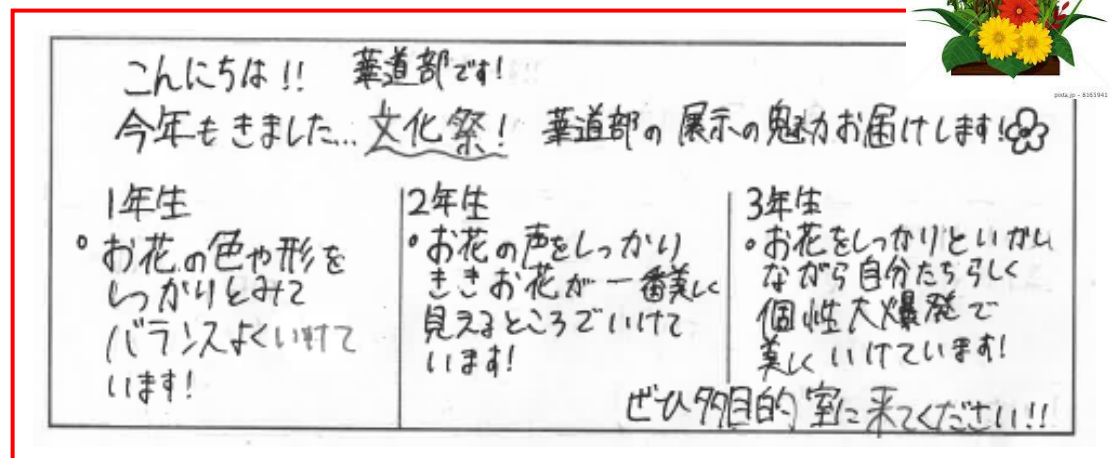 こんにちは!! 華道部です!
今年もきました…文化祭! 華道部の展示の魅力お届けします!
1年生
• お花の色や形を
しっかりとみて
バランスよくいけて
います!
2年生
• お花の声をしっかり
ききお花が一番美しく
見えるところでいけて
います!
3年生
• お花をしっかりといかし
ながら自分たちらしく
個性大爆発で
美しくいけています!
ぜひ多目的室に来てください!!
pixta.jp - 8163941